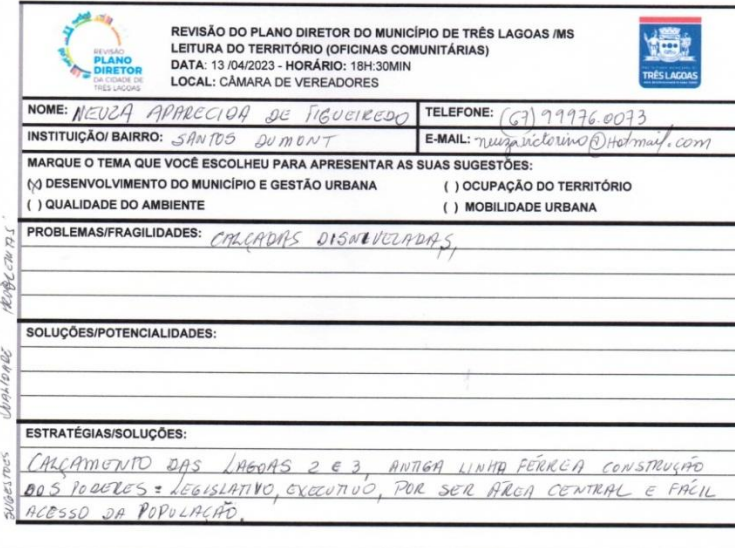 REVISÃO
PLANO
DIRETOR
DA CIDADE DE
TRÊS LAGOAS
REVISÃO DO PLANO DIRETOR DO MUNICÍPIO DE TRÊS LAGOAS /MS
LEITURA DO TERRITÓRIO (OFICINAS COMUNITÁRIAS)
DATA: 13 /04/2023 - HORÁRIO: 18H:30MIN
LOCAL: CÂMARA DE VEREADORES
TRÊS LAGOAS
NOME: NEUZA APARECIDA DE FIGUEIREDO
TELEFONE: (67) 99976.0073
INSTITUIÇÃO/ BAIRRO: SANTOS DUMONT
E-MAIL: neuzavictorino@Hotmail.com
MARQUE O TEMA QUE VOCÊ ESCOLHEU PARA APRESENTAR AS SUAS SUGESTÕES:
(X) DESENVOLVIMENTO DO MUNICÍPIO E GESTÃO URBANA
( ) OCUPAÇÃO DO TERRITÓRIO
( ) QUALIDADE DO AMBIENTE
( ) MOBILIDADE URBANA
PROBLEMAS/FRAGILIDADES: CALÇADAS DISNIVELADAS,
SOLUÇÕES/POTENCIALIDADES:
ESTRATÉGIAS/SOLUÇÕES:
CALÇAMENTO DAS LAGOAS 2 E 3, ANTIGA LINHA FÉRREA CONSTRUÇÃO
DOS PODERES = LEGISLATIVO, EXECUTIVO, POR SER ÁREA CENTRAL E FÁCIL
ACESSO DA POPULAÇÃO.
SUGESTOES QUALIDADE PROBLEMAS